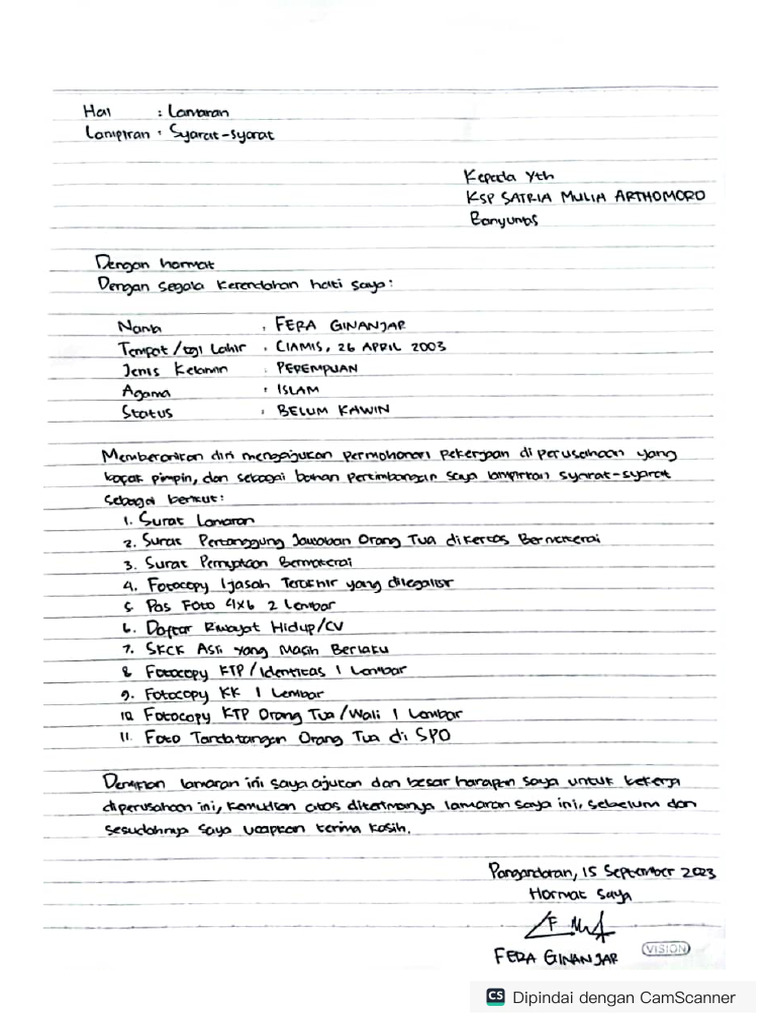 Hal : Lamaran
Lampiran : Syarat-syarat
Kepada Yth
KSP SATRIA MULIA ARTHOMORO
Banyumas
Dengan hormat
Dengan segala kerendahan hati saya :
Nama : FERA GINANJAR
Tempat/tgl Lahir : CIAMIS, 26 APRIL 2003
Jenis Kelamin : PEREMPUAN
Agama : ISLAM
Status : BELUM KAWIN
Memberanikan diri mengajukan permohonan pekerjaan di perusahaan yang
bapak pimpin, dan sebagai bahan pertimbangan saya lampirkan syarat-syarat
sebagai berikut :
1. Surat Lamaran
2. Surat Pertanggung Jawaban Orang Tua dikertas Bermaterai
3. Surat Pernyataan Bermaterai
4. Fotocopy Ijasah Terakhir yang dilegalisir
5. Pas Foto 4x6 2 Lembar
6. Daftar Riwayat Hidup/CV
7. SKCK Asli yang Masih Berlaku
8. Fotocopy KTP/Identitas 1 Lembar
9. Fotocopy KK 1 Lembar
10. Fotocopy KTP Orang Tua/Wali 1 Lembar
11. Foto Tandatangan Orang Tua di SPO
Demikian lamaran ini saya ajukan dan besar harapan saya untuk bekerja
diperusahaan ini, kemudian atas diterimanya lamaran saya ini, sebelum dan
sesudahnya saya ucapkan terima kasih.
Pangandaran, 15 September 2023
Hormat saya
FERA GINANJAR
VISION
CS Dipindai dengan CamScanner